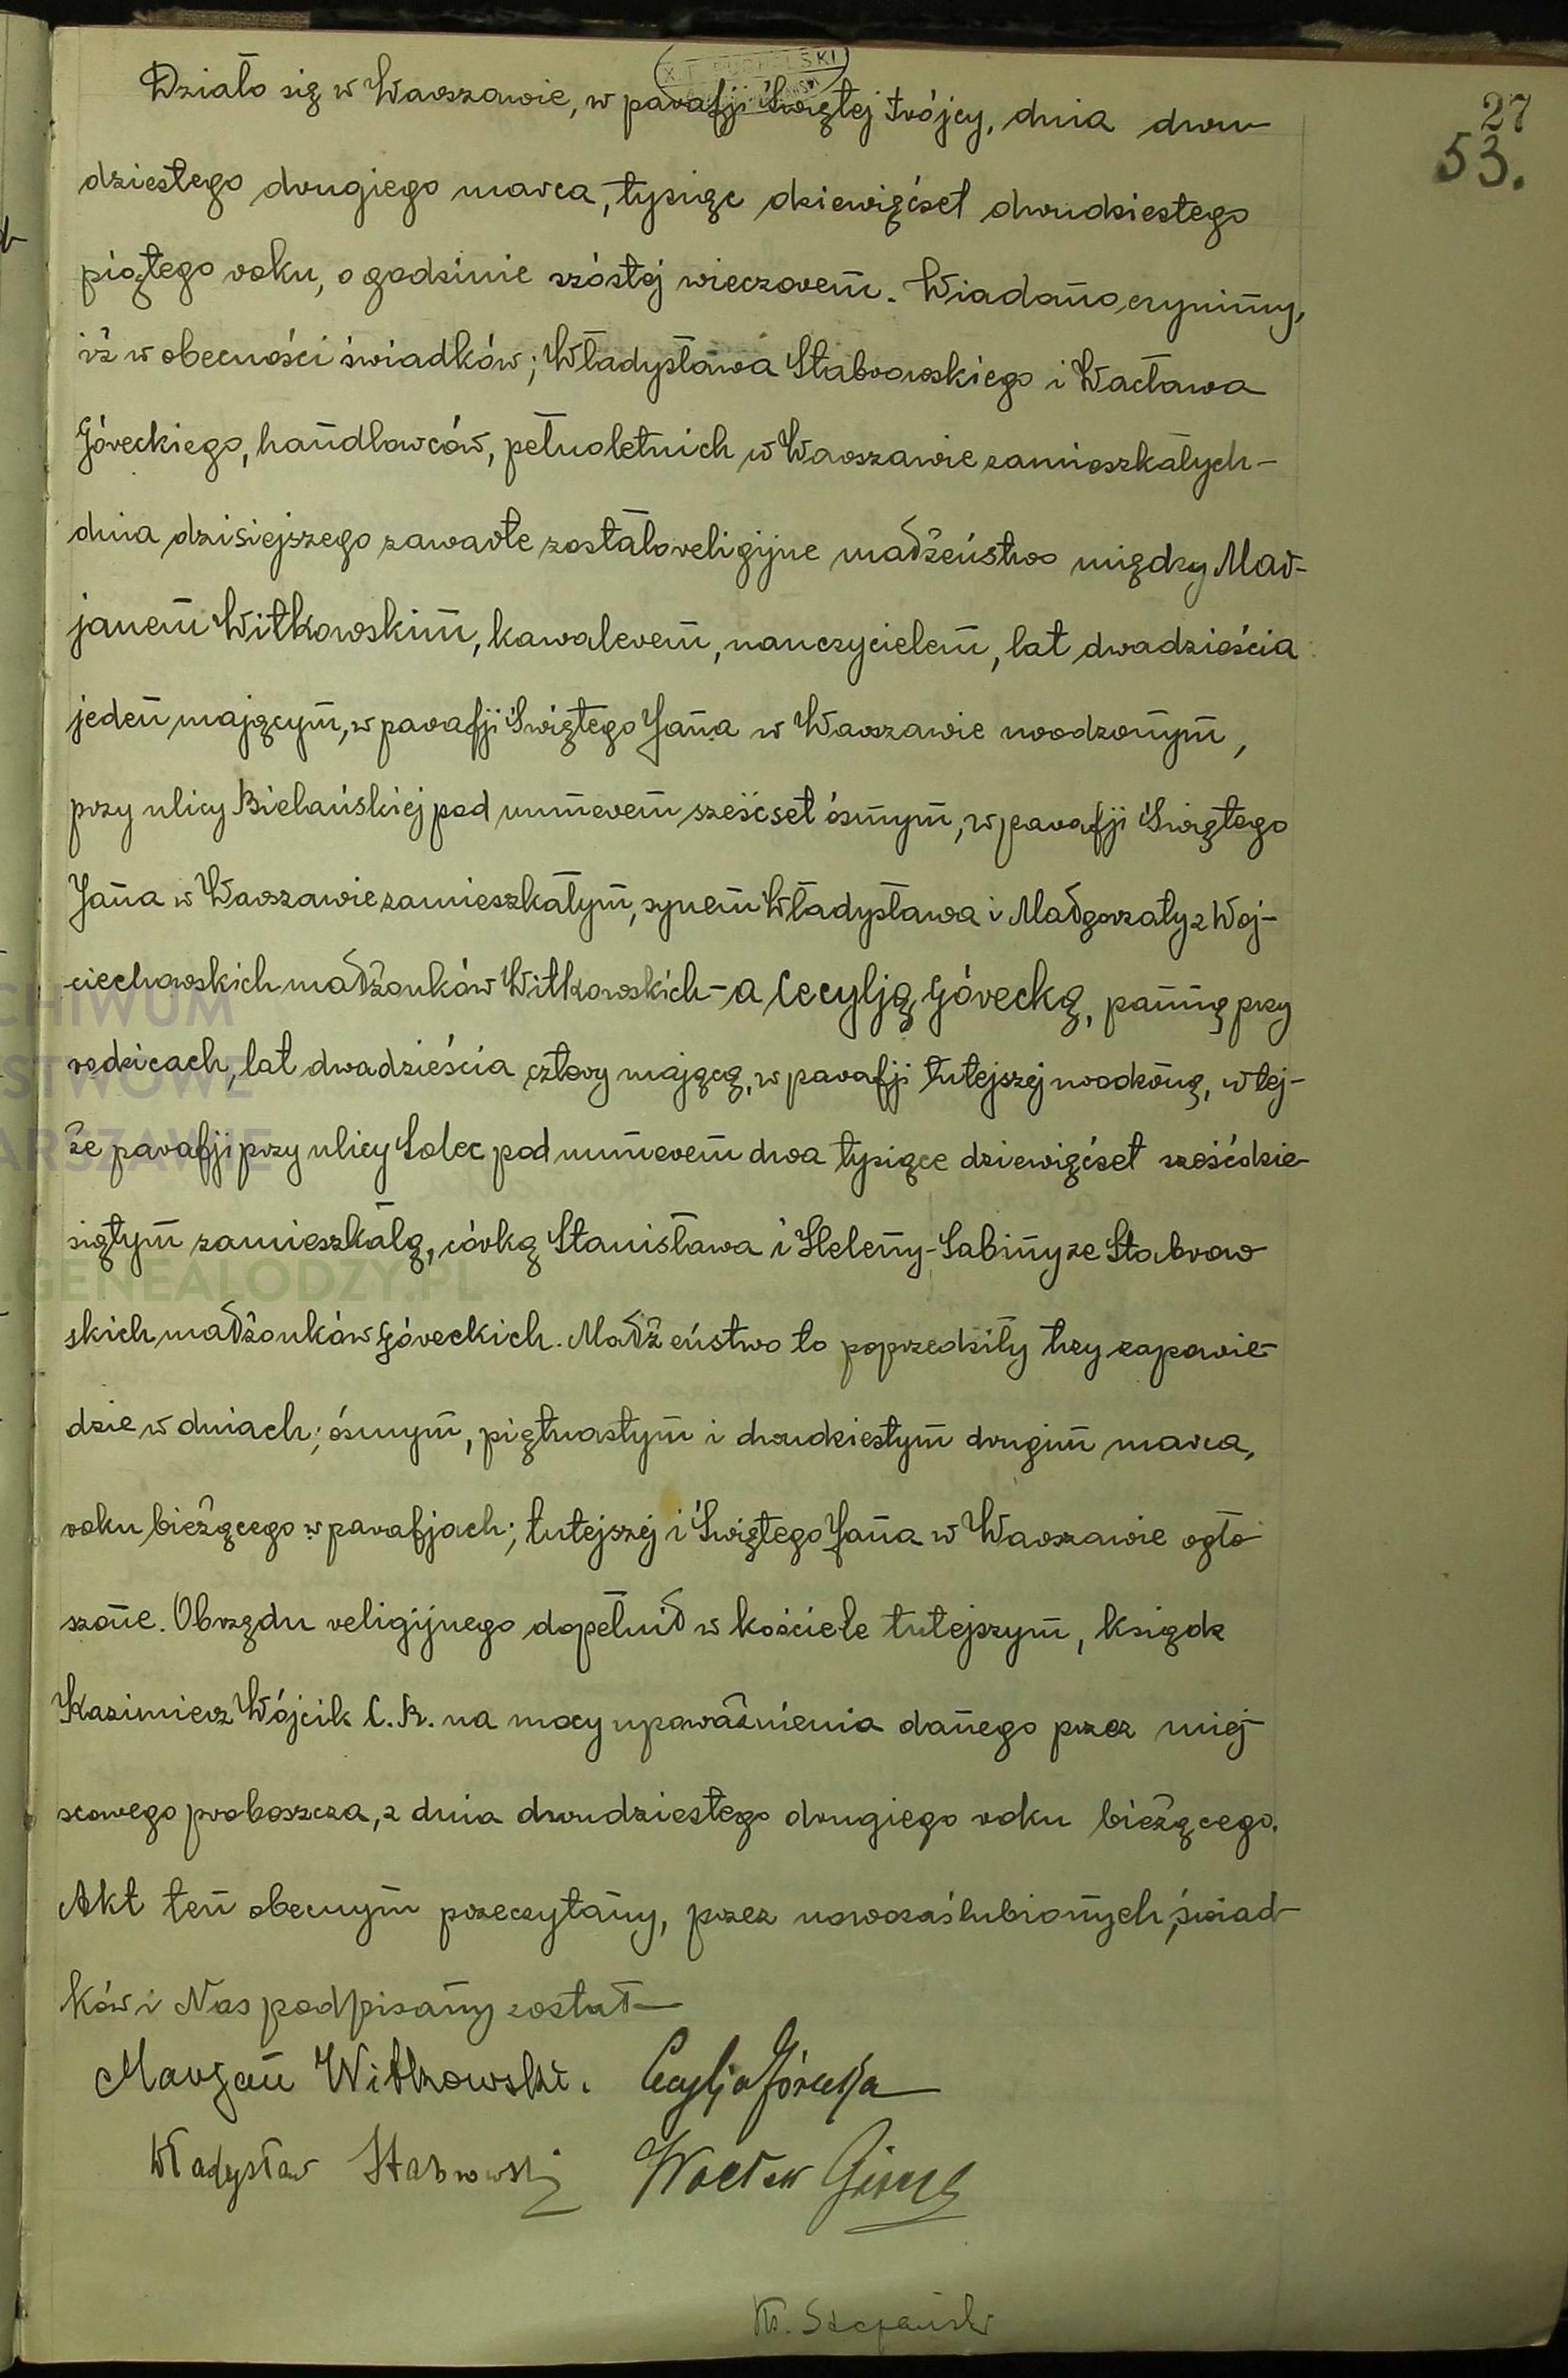 27
53.
Działo się w Warszawie, w parafji Świętej Trójcy, dnia dwu
dziestego drugiego marca, tysiąc dziewięćset dwudziestego
piątego roku, o godzinie szóstej wieczorem. Wiadomo czynimy,
iż w obecności świadków; Władysława Stabrowskiego i Wacława
Góreckiego, handlowców, pełnoletnich w Warszawie zamieszkałych-
dnia dzisiejszego zawarte zostało religijne małżeństwo między Mar-
janem Witkowskim, kawalerem, nauczycielem, lat dwadzieścia
jeden mającym, w parafji Świętego Jana w Warszawie urodzonym,
przy ulicy Bielańskiej pod numerem sześćset ósmym, w parafji Świętego
Jana w Warszawie zamieszkałym, synem Władysława i Małgorzaty z Woj-
ciechowskich małżonków Witkowskich - a Cecylją Górecką, panną przy
rodzicach, lat dwadzieścia cztery mającą, w parafji tutejszej urodzoną, w tej-
że parafji przy ulicy Solec pod numerem dwa tysiące dziewięćset sześćdzie-
siątym zamieszkałą, córką Stanisława i Heleny-Sabiny ze Stabrow
skich małżonków Góreckich. Małżeństwo to poprzedziły trzy zapowie-
dzie w dniach; ósmym, piętnastym i dwudziestym drugim marca,
roku bieżącego w parafjach; tutejszej i Świętego Jana w Warszawie ogło
szone. Obrzędu religijnego dopełnił w kościele tutejszym, ksiądz
Kazimierz Wójcik C.R. na mocy upoważnienia danego przez miej
scowego proboszcza, z dnia dwudziestego drugiego roku bieżącego.
Akt ten obecnym przeczytany, przez nowozaślubionych, świad-
ków i Nas podpisany został-
Marjan Witkowski. Cecylja Górecka
Władysław Stabrowski Wacław Górecki
CHIWUM
STWOWE
ARSZAWIE
.GENEALODZY.PL